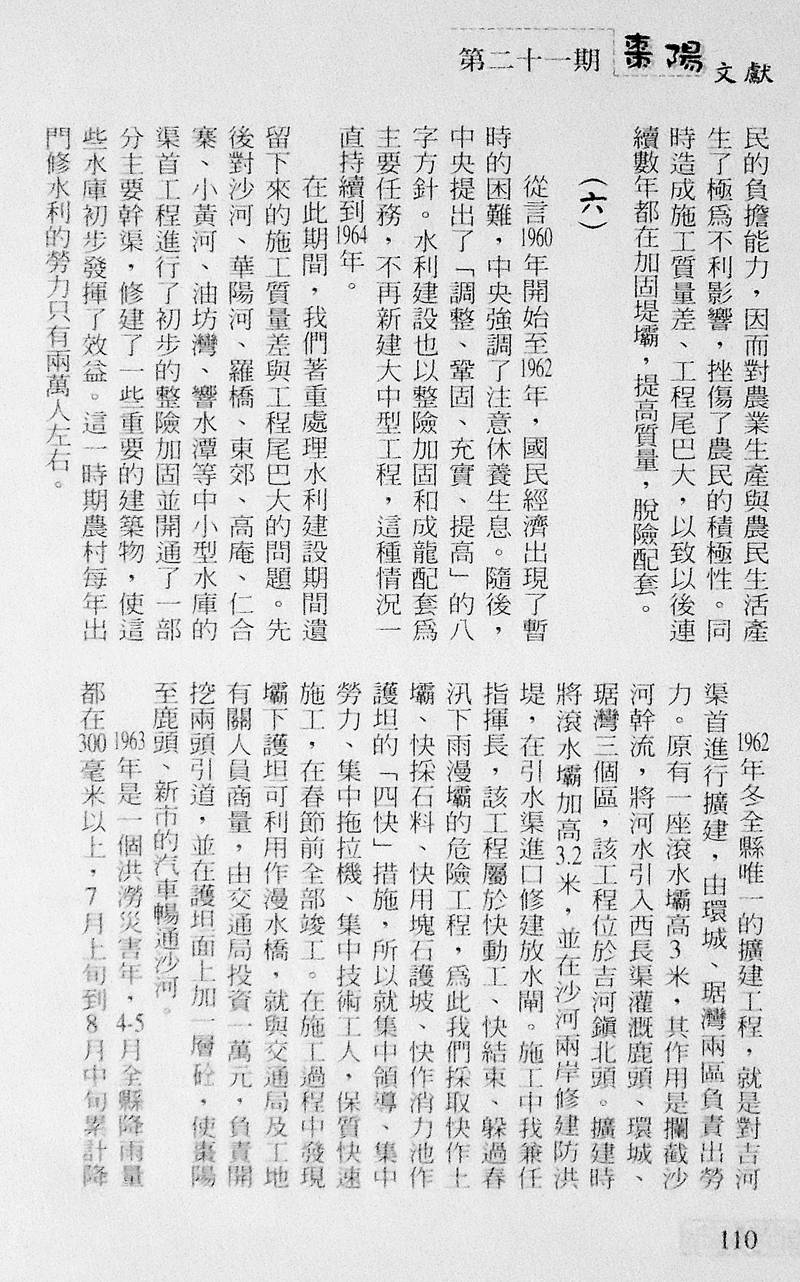 第二十一期 棗陽文獻
民的負擔能力，因而對農業生產與農民生活產
生了極為不利影響，挫傷了農民的積極性。同
時造成施工質量差、工程尾巴大，以致以後連
續數年都在加固堤壩，提高質量，脫險配套。
（六）
從言1960年開始至1962年，國民經濟出現了暫
時的困難，中央強調了注意休養生息。隨後，
中央提出了「調整、鞏固、充實、提高」的八
字方針。水利建設也以整險加固和成龍配套為
主要任務，不再新建大中型工程，這種情況一
直持續到1964年。
在此期間，我們著重處理水利建設期間遺
留下來的施工質量差與工程尾巴大的問題。先
後對沙河、華陽河、羅橋、東郊、高庵、仁合
寨、小黃河、油坊灣、響水潭等中小型水庫的
渠首工程進行了初步的整險加固並開通了一部
分主要幹渠，修建了一些重要的建築物，使這
些水庫初步發揮了效益。這一時期農村每年出
門修水利的勞力只有兩萬人左右。
1962年冬全縣唯一的擴建工程，就是對吉河
渠首進行擴建，由環城、琚灣兩區負責出勞
力。原有一座滾水壩高3米，其作用是攔截沙
河幹流，將河水引入西長渠灌溉鹿頭、環城、
琚灣三個區，該工程位於吉河鎮北頭。擴建時
將滾水壩加高3.2米，並在沙河兩岸修建防洪
堤，在引水渠進口修建放水閘。施工中我兼任
指揮長，該工程屬於快動工、快結束、躲過春
汛下雨漫壩的危險工程，為此我們採取快作土
壩、快採石料、快用塊石護坡、快作消力池作
護坦的「四快」措施，所以就集中領導、集中
勞力、集中拖拉機、集中技術工人，保質快速
施工，在春節前全部竣工。在施工過程中發現
壩下護坦可利用作漫水橋，就與交通局及工地
有關人員商量，由交通局投資一萬元，負責開
挖兩頭引道，並在護坦面上加一層砼，使棗陽
至鹿頭、新市的汽車暢通沙河。
1963年是一個洪澇災害年，4-5月全縣降雨量
都在300毫米以上，7月上旬到8月中旬累計降
110